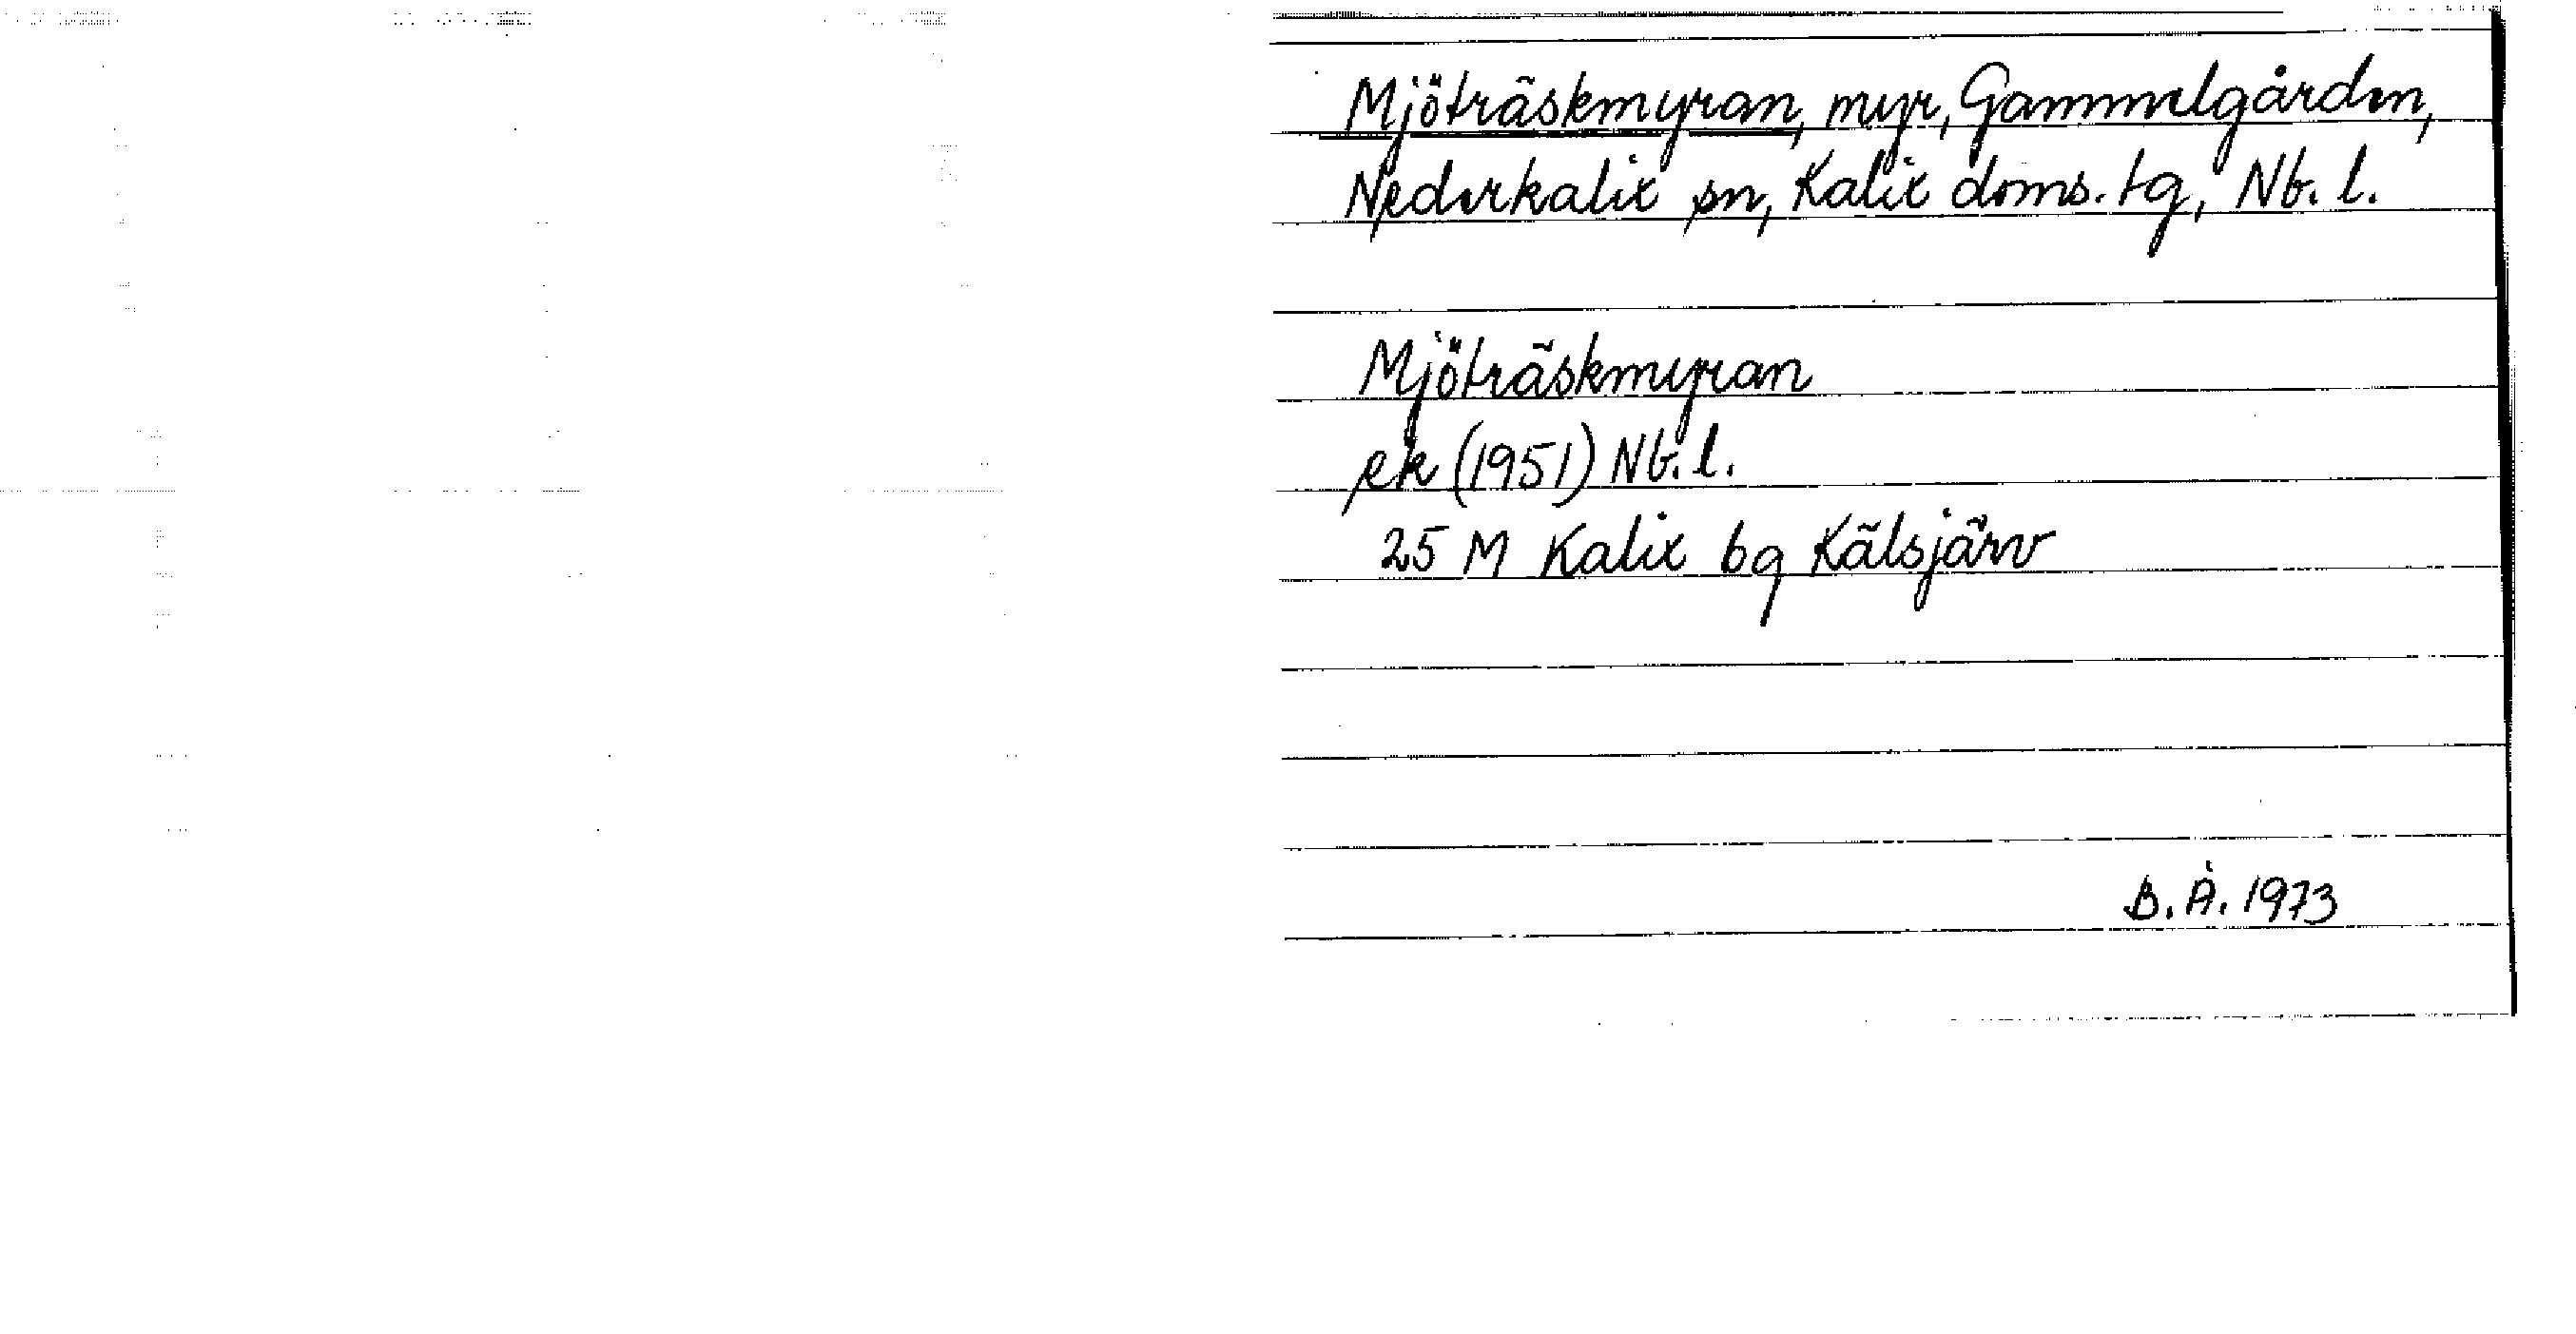 Mjöträskmyran, myr, Gammelgården,
Nederkalix sn, Kalix doms. tg, Nb. l.
Mjöträskmyran
ek (1951) Nb. l.
25 M Kalix bg Kälsjärv
B. Å. 1973